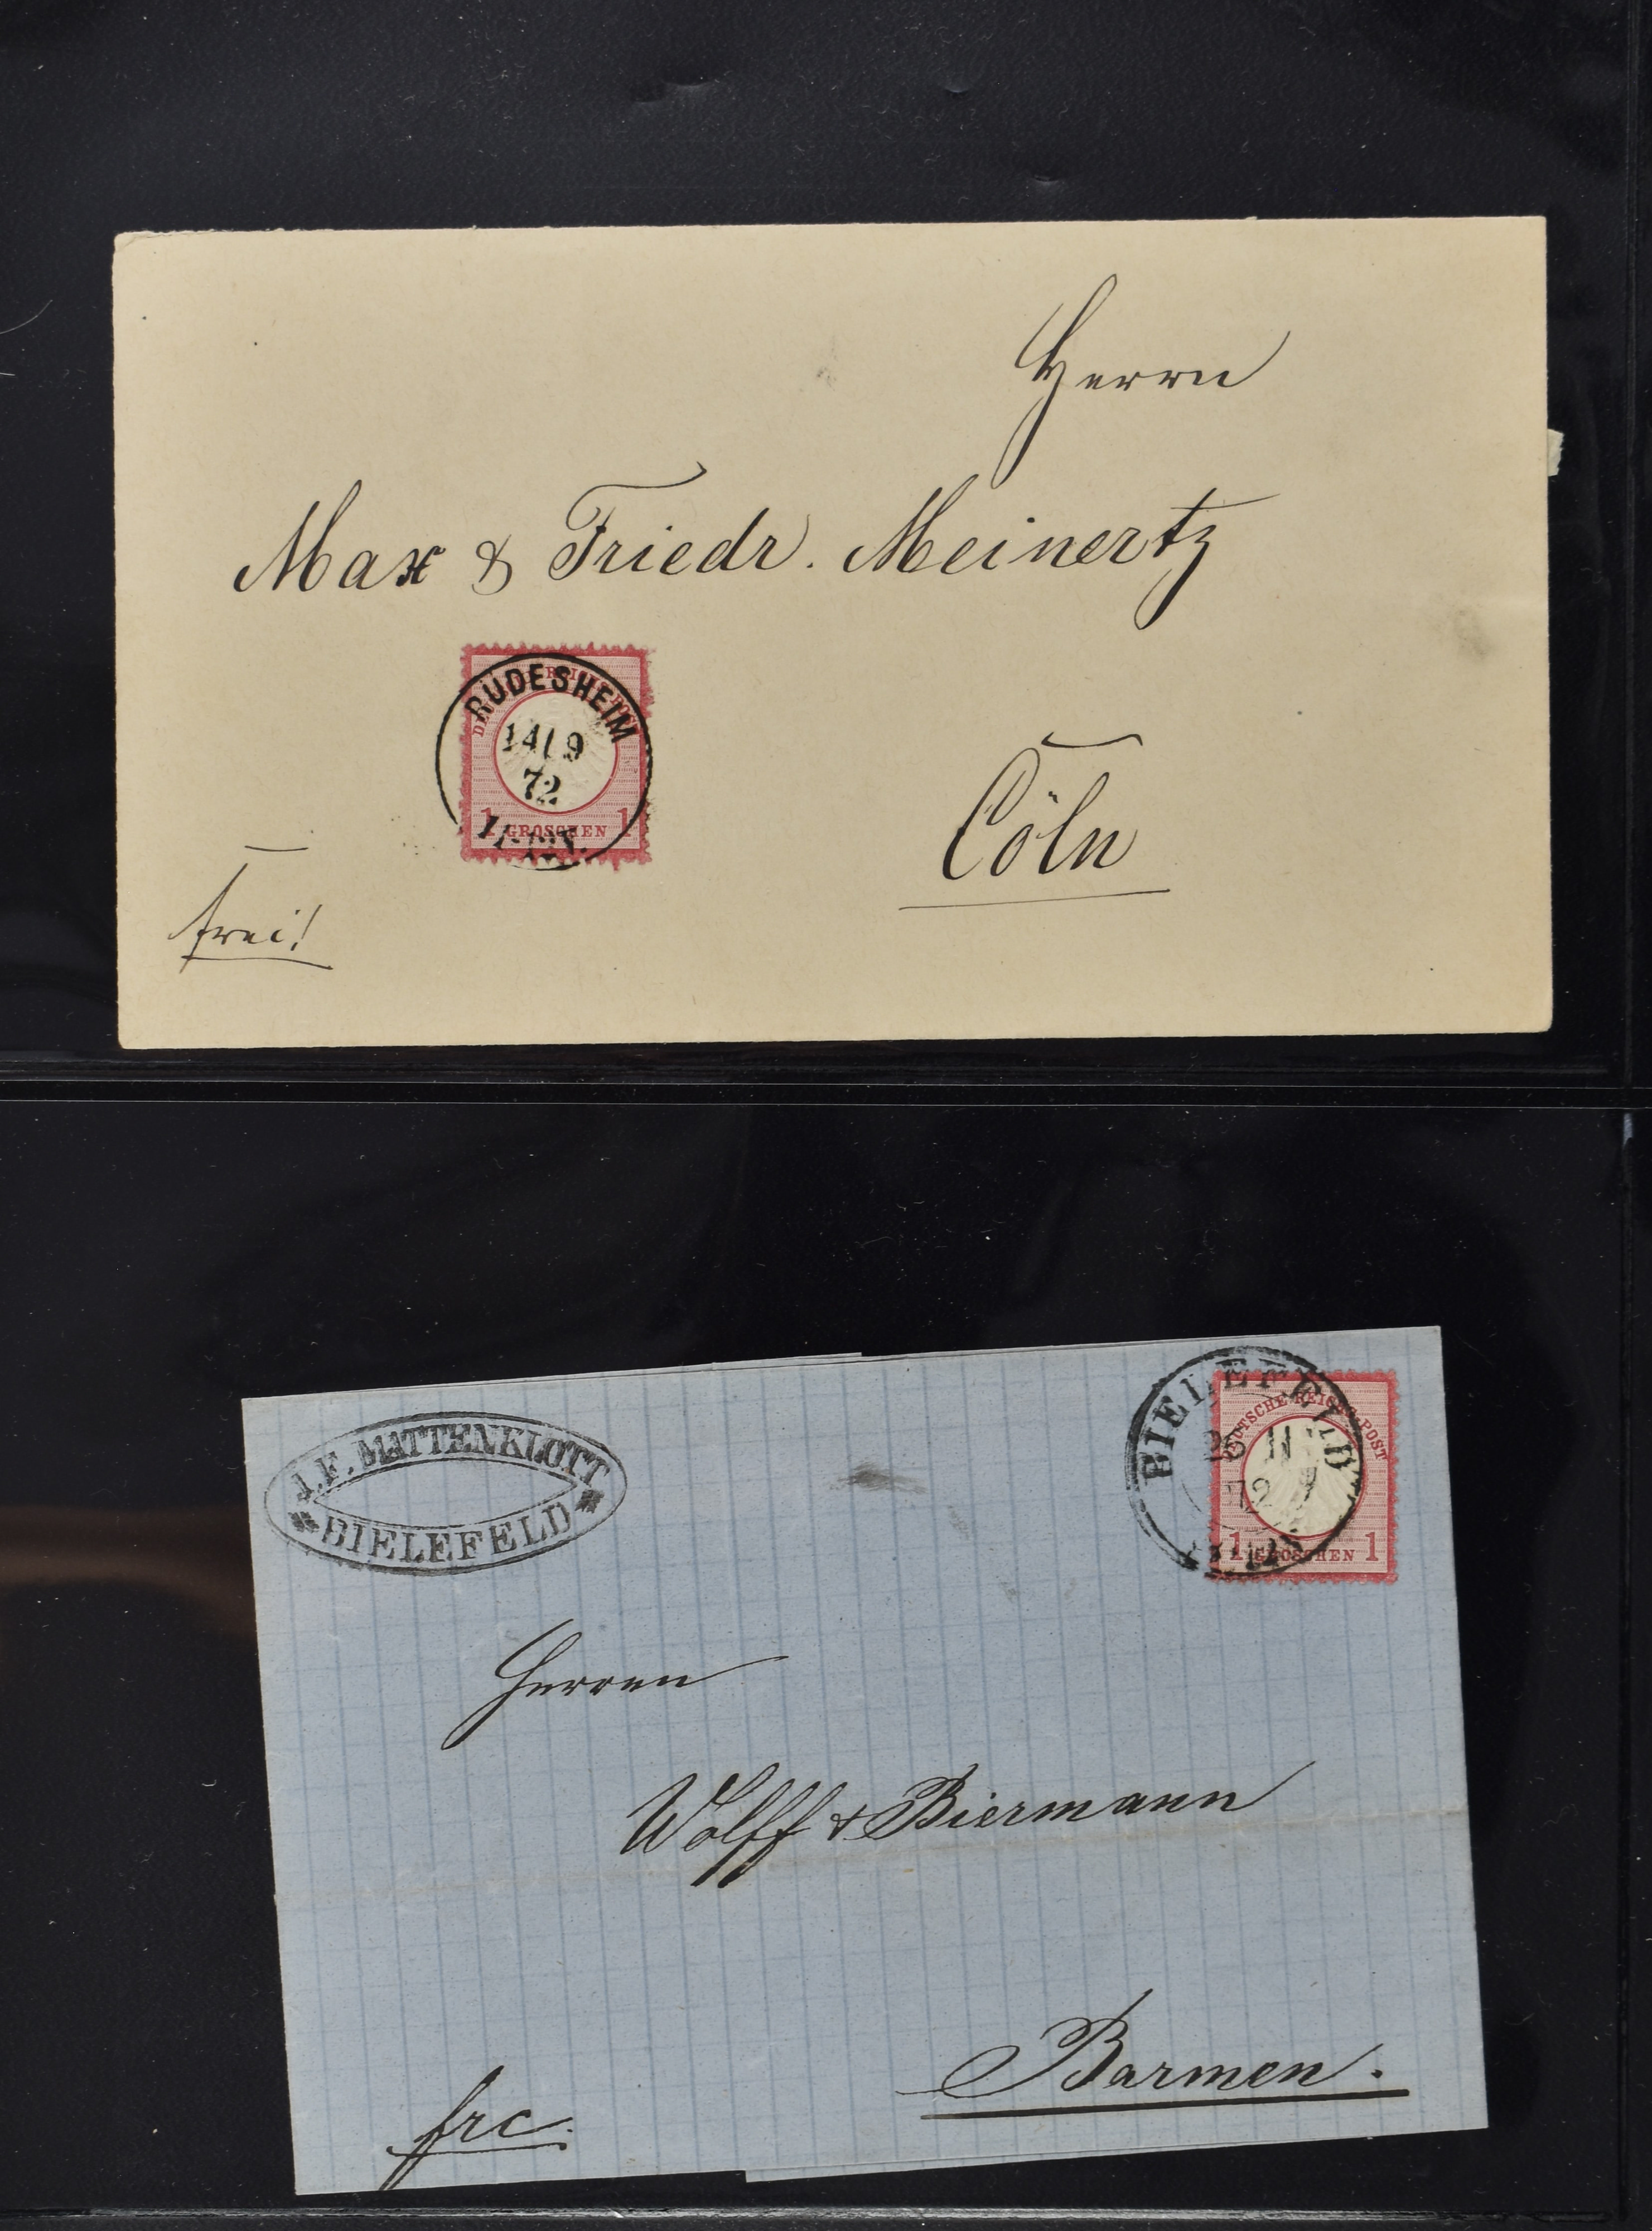 Herrn
Max & Friedr. Meinertz
RÜDESHEIM
14 9
72
1 GROSCHEN 1
Cöln
frei!
J.F. MITTENKLOTT
BIELEFELD
BIELEFELD
26 11
72
DEUTSCHE REICHS-POST
1 GROSCHEN 1
Herren
Wolff & Biermann
Barmen.
frc.